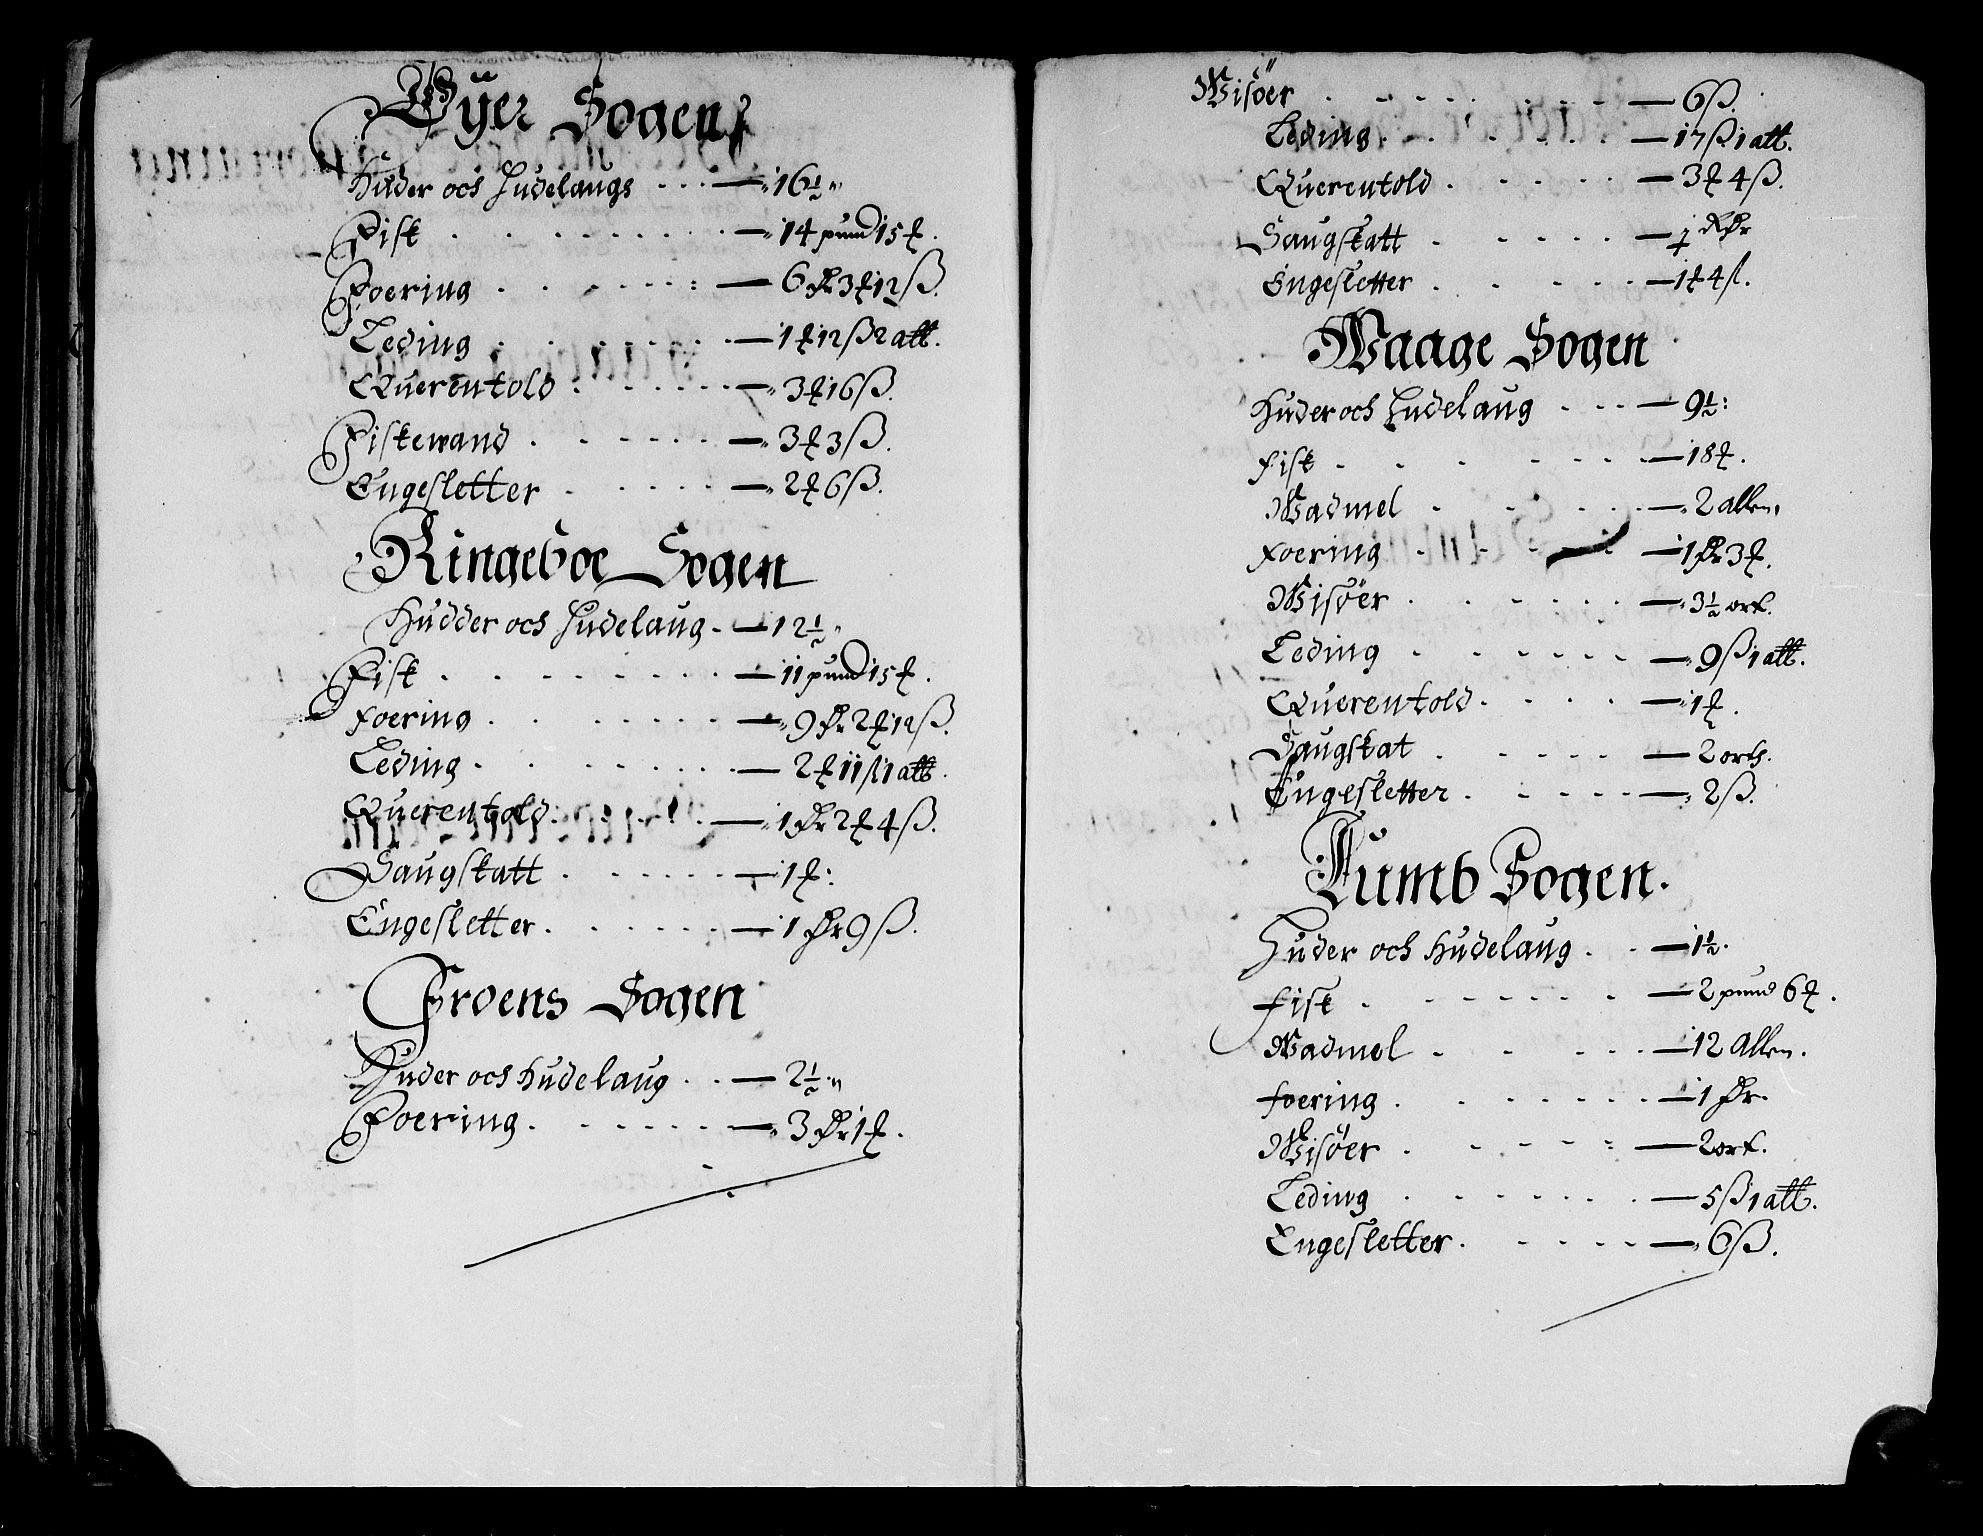 Öyer Sogen
Huder och Hudelaugs - - - 16½
Fisk - - - 14 pund 15 ℔.
Foering - - - 6 Dr 3 ℔ 12 ß.
Leding - - - 1 ℔ 12 ß 2 alb.
Querentold - - - 3 ℔ 16 ß.
Fiskewand - - - 3 ℔ 3 ß.
Engesletter - - - 2 ℔ 6 ß.
Ringeboe Sogen
Hudder och Hudelaug - 12½
Fisk - - - 11 pund 15 ℔.
Foering - - - 9 Dr 2 ℔ 12 ß.
Leding - - - 2 ℔ 11 ß 1 alb.
Querentold - - - 1 Dr 2 ℔ 4 ß.
Saugskatt - - - 1 ℔:
Engesletter - - - 1 Dr 9 ß.
Froens Sogen
Huder och Hudelaug - - - 2½
Foering - - - 3 Dr 1 ℔.
Wisöer - - - 6 ß.
Leding - - - 17 ß 1 alb.
Querentold - - - 3 ℔ 4 ß.
Saugskatt - - - 1 RDr
Engesletter - - - 1 ℔ 4 ß.
Waage Sogen
Huder och Hudelaug - - - 9½:
Fisk - - - 18 ℔.
Wadmel - - - 2 allen.
Foering - - - 1 Dr 3 ℔.
Wisöer - - - 3½ ort.
Leding - - - 9 ß 1 alb.
Querentold - - - 1 ℔.
Saugskat - - - 2 orth.
Engesletter - - - 2 ß.
Lumb Sogen.
Huder och Hudelaug - - - 1½.
Fisk - - - 2 pund 6 ℔.
Wadmel - - - 12 Allen.
Foering - - - 1 Dr.
Wisöer - - - 2 ort.
Leding - - - 5 ß 1 alb.
Engesletter - - - 6 ß.